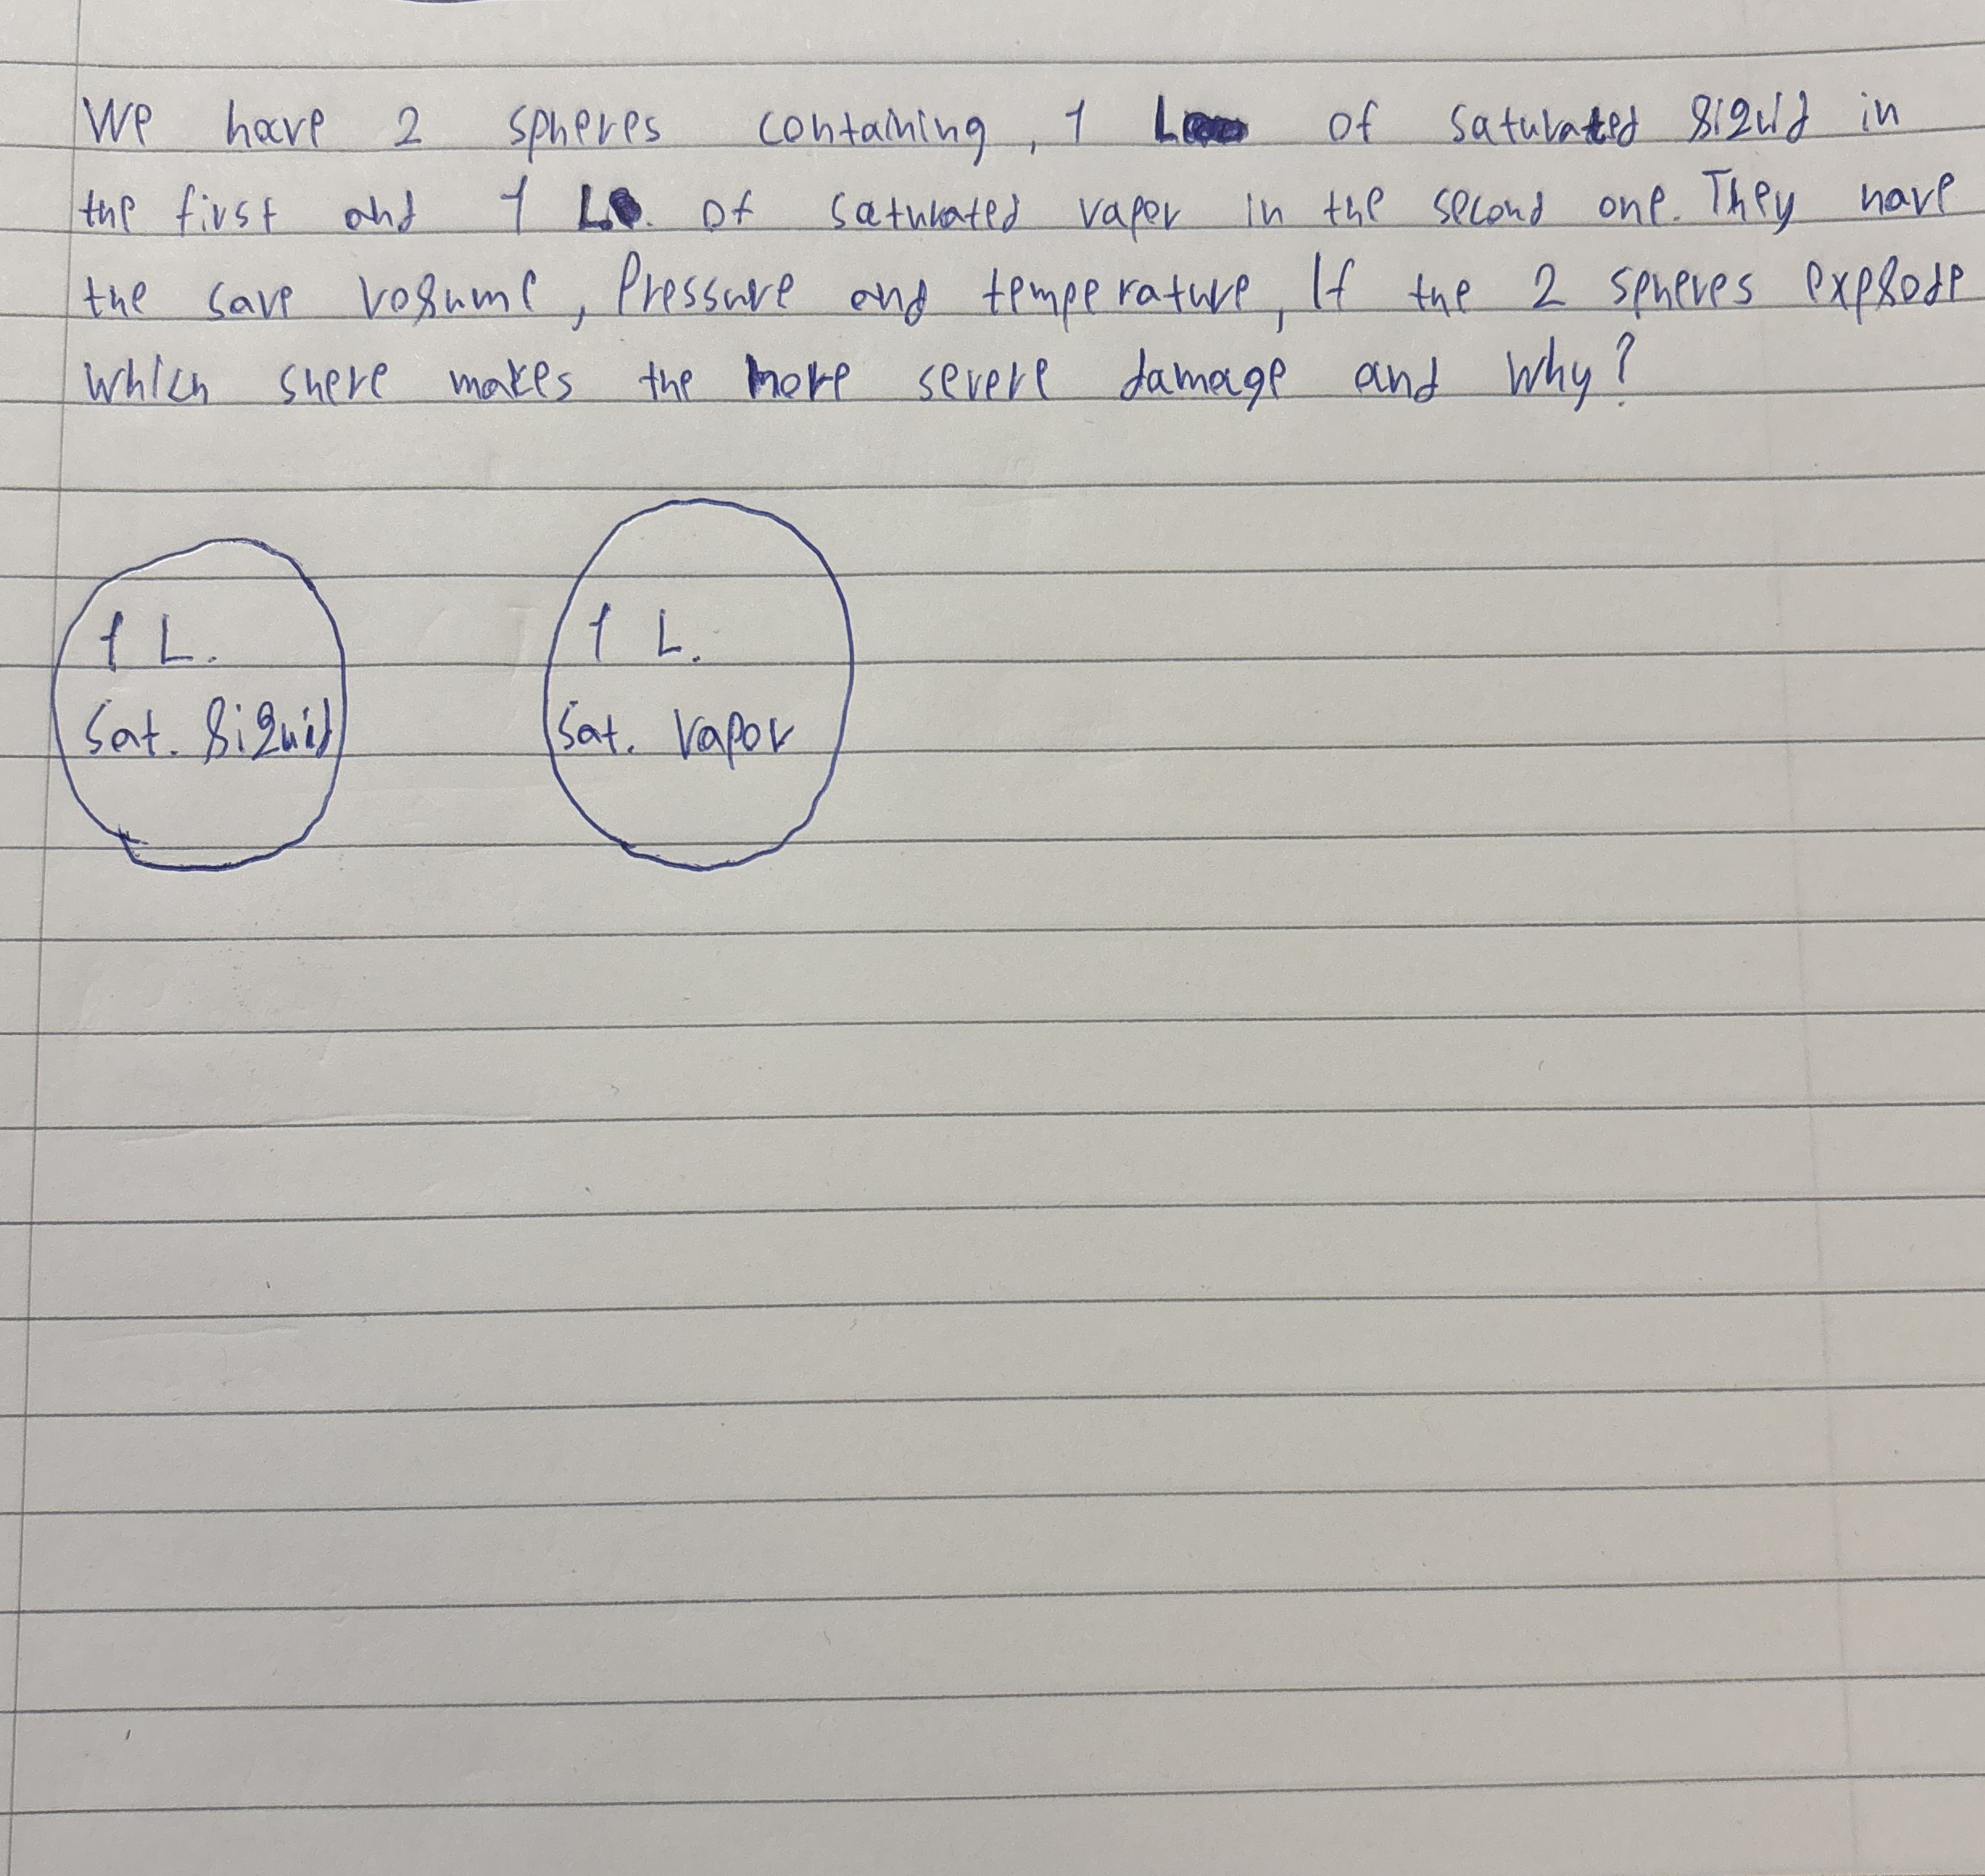 We have 2 spheres containing, 1 L of saturated liquid in
the first and 1 L. of saturated vapor in the second one. They have
the save volume, Pressure and temperature, If the 2 spheres explode
which shere makes the more severe damage and why?
1 L. 1 L.
Sat. liquid Sat. vapor